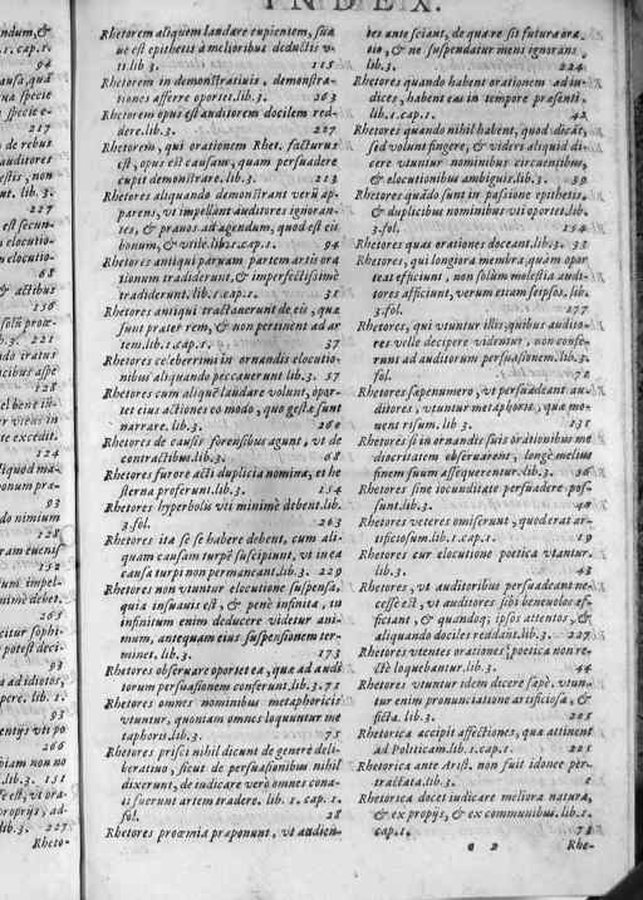 INDEX.
ndum, &
1. cap. 1.
94
ausa, quā
na specie
specie e-
217
de rebus
auditores
estis, non
nt. lib. 3.
227
est secun-
elocutio-
elocutio-
68
& actibus
156
solū proœ-
b. 3. 221
do iratus
cibus aspe
128
el bene in-
r viens in
te excedit.
124
liquod ma-
onum præ-
93
do nimium
128
ram euenis
152
tum impel-
nimè debet.
265
citur sophi-
potest deci-
93
a ad idiotos,
pere. lib. 1.
93
entijs vti po
266
biam non no
.lib. 3. 151
e est, vt ora-
proprijs, ad-
lib. 3. 227
Rheto-
Rhetorem aliquem laudare cupientem, sua
ue est epithetis à melioribus deductis v-
ti lib 3. 115
Rhetorem in demonstratiuis, demonstra-
tiones afferre oportet. lib 3. 263
Rhetorem opus est auditorem docilem red-
dere. lib 3. 227
Rhetorem, qui orationem Rhet. facturus
est, opus est causam, quam persuadere
cupit demonstrare. lib 3. 213
Rhetores aliquando demonstrant verū ap-
parens, vt impellant auditores ignoran-
tes, & pranos ad agendum, quod est eis
bonum, & vtile. lib. 1. cap. 1. 94
Rhetores antiqui paruam partem artis ora
tionum tradiderunt, & imperfectissimè
tradiderunt. lib. 1 cap. 1. 31
Rhetores antiqui tractauerunt de eis, quæ
sunt præter rem, & non pertinent ad ar
tem. lib. 1. cap. 1. 37
Rhetores celeberrimi in ornandis elocutio-
nibus aliquando peccauerunt lib. 3. 57
Rhetores cum aliquē laudare volunt, opor-
tet eius actiones eo modo, quo gestæ sunt
narrare. lib 3. 260
Rhetores de causis forensibus agunt, vt de
contractibus. lib 3. 68
Rhetores furore acti duplicia nomina, et he
sterna proferunt. lib. 3. 154
Rhetores hyperbolis vti minimè debent. lib.
3. fol. 263
Rhetores ita se se habere debent, cum ali-
quam causam turpē suscipiunt, vt in ea
causa turpi non permaneant. lib 3. 229
Rhetores non vtuntur elocutione suspensa,
quia insuauis est, & penè infinita, in
infinitum enim deducere videtur ani-
mum, antequam eius suspensionem ter-
minet. lib. 3. 173
Rhetores obseruare oportet ea, quæ ad audi
torum persuasionem conferunt. lib. 3. 71
Rhetores omnes nominibus metaphoricis
vtuntur, quoniam omnes loquuntur me
taphoris. lib. 3. 75
Rhetores prisci nihil dicunt de genere deli-
beratiuo, sicut de persuasionibus nihil
dixerunt, de iudicare verò omnes cona-
ti fuerunt artem tradere. lib. 1. cap. 1.
fol. 28
Rhetores proœmia præponunt, vt audien-
tes ante sciant, de qua re sit futura ora
tio, & ne suspendatur mens ignorans
lib. 3. 224
Rhetores quando habent orationem ad iu-
dices, habent eas in tempore præsenti.
lib. 1. cap. 1. 42
Rhetores quando nihil habent, quod dicāt,
sed volunt fingere, & videri aliquid di-
cere vtuntur nominibus circuentibus,
& elocutionibus ambiguis. lib. 3. 59
Rhetores quādo sunt in passione epithetis,
& duplicibus nominibus vti oportet. lib.
3. fol. 154
Rhetores quas orationes doceant. lib. 3. 33
Rhetores, qui longiora membra, quàm opor
teat efficiunt, non solùm molestia audi-
tores afficiunt, verum etiam seipsos. lib.
3. fol. 177
Rhetores, qui vtuntur illis, quibus audito-
res velle decipere videntur, non confe-
runt ad auditorum persuasionem. lib. 3.
fol. 72
Rhetores sæpenumero, vt persuadeant au-
ditores, vtuntur metaphoris, quæ mo-
uent risum. lib 3. 135
Rhetores si in ornandis suis orationibus me
diocritatem obseruarent, longè melius
finem suum assequerentur. lib. 3. 96
Rhetores sine iocunditate persuadere pos-
sunt. lib. 3. 40
Rhetores veteres omiserunt, quod erat ar-
tificiosum. lib. 1. cap. 1. 19
Rhetores cur elocutione poetica vtantur.
lib. 3. 43
Rhetores, vt auditoribus persuadeant ne-
cesse est, vt auditores sibi beneuolos ef-
ficiant, & quandoq; ipsos attentos, &
aliquando dociles reddant. lib. 3. 227
Rhetores vtentes orationes poetica non re-
ctè loquebantur. lib. 3. 44
Rhetores vtuntur idem dicere sæpè. vtun-
tur enim pronunciatione artificiosa, &
ficta. lib. 3. 205
Rhetorica accipit affectiones, quæ attinent
ad Politicam. lib. 1. cap. 1. 201
Rhetorica ante Arist. non fuit idonee per-
tractata. lib. 3. 2
Rhetorica docet iudicare meliora natura,
& ex proprijs, & ex communibus. lib. 1.
cap. 1. 71
e 2 Rhe-